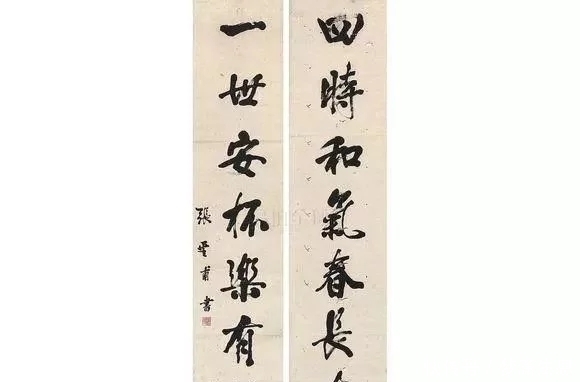 四時和氣春長
一世安杯樂有
張甫書